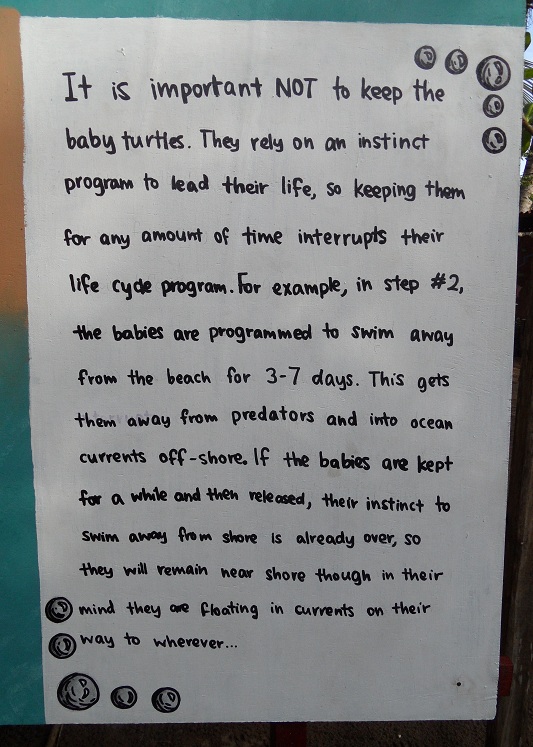 It is important NOT to keep the
baby turtles. They rely on an instinct
program to lead their life, so keeping them
for any amount of time interrupts their
life cycle program. For example, in step #2,
the babies are programmed to swim away
from the beach for 3-7 days. This gets
them away from predators and into ocean
currents off-shore. If the babies are kept
for a while and then released, their instinct to
swim away from shore is already over, so
they will remain near shore though in their
mind they are floating in currents on their
way to wherever...